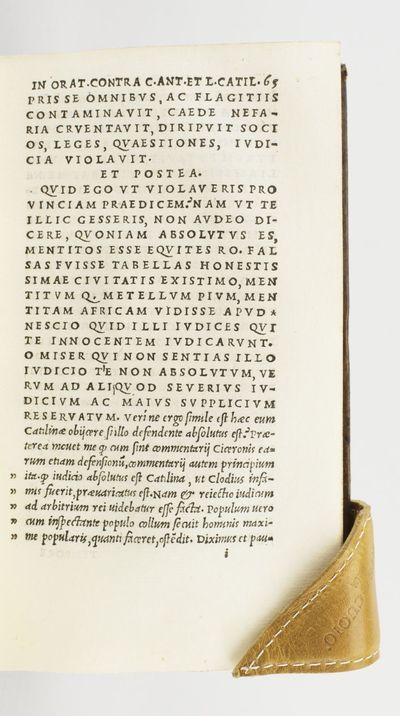 IN ORAT. CONTRA C. ANT. ET L. CATIL. 65
PRIS SE OMNIBVS, AC FLAGITIIS
CONTAMINAVIT, CAEDE NEFA-
RIA CRVENTAVIT, DIRIPVIT SOCI
OS, LEGES, QVAESTIONES, IVDI-
CIA VIOLAVIT.
ET POSTEA.
QVID EGO VT VIOLAVERIS PRO
VINCIAM PRAEDICEM? NAM VT TE
ILLIC GESSERIS, NON AVDEO DI-
CERE, QVONIAM ABSOLVTVS ES,
MENTITOS ESSE EQVITES RO. FAL
SAS FVISSE TABELLAS HONESTIS
SIMAE CIVITATIS EXISTIMO, MEN
TITVM Q. METELLVM PIVM, MEN
TITAM AFRICAM VIDISSE APVD *
NESCIO QVID ILLI IVDICES QVI
TE INNOCENTEM IVDICARVNT.
O MISER QVI NON SENTIAS ILLO
IVDICIO TE NON ABSOLVTVM, VE
RVM AD ALIQVOD SEVERIVS IV-
DICIVM AC MAIVS SVPPLICIVM
RESERVATVM. veri ne ergo simile est hæc eum
Catilinæ obijcere si illo defendente absolutus est? Præ-
terea mouet me q cum sint commentarij Ciceronis ea-
rum etiam defensionũ, commentarij autem principium
„ ita. q iudicio absolutus est Catilina, ut Clodius infa-
„ mis fuerit, præuaricatus est. Nam & reiectio iudicum
„ ad arbitrium rei uidebatur esse facta. Populum uero
„ cum inspectante populo collum secuit hominis maxi-
„ me popularis, quanti faceret, ostẽdit. Diximus et pau-
i